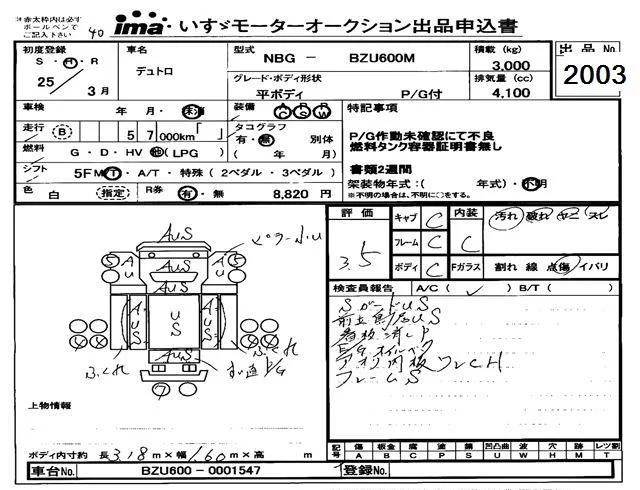 ※赤太枠内は必ず
ボールペンで
ご記入下さい
40
ima いすゞモーターオークション出品申込書
初度登録 S・H・R 25年3月
車名 デュトロ
型式 NBG - BZU600M
積載 (kg) 3,000
出品No. 2003
グレード・ボディ形状 平ボディ P/G付
排気量 (cc) 4,100
車検 年 月・抹消
装備 A/C P/S P/W
特記事項
走行 (B) 57,000km「 」
タコグラフ 有・無 別体
( 年 月)
P/G作動未確認にて不良
燃料タンク容器証明書無し
燃料 G・D・HV・他(LPG)
書類2週間
シフト 5F MT・A/T・特殊(2ペダル・3ペダル)
架装物年式:( 年式)・不明
※不明の場合は、不明に○をする。
色 白 (指定)
R券 有・無 8,820円
評価 3.5
キャブ C
内装 C
汚れ 破れ ヤニ スレ
フレーム C
ボディ C
Fガラス 割れ 線 点傷 イバリ
検査員報告 A/C(✓) B/T( )
SガードUS
看板消しP
EGオイルベタ
アオリ内板ワレCH
フレームS
AUS
AU
AU
AUS
US
AUS
AUS
AUS
5
5
7
ふくれ
ふくれ
上物情報
ボディ内寸約 長3.18m×幅1.60m×高 m
記号 傷A 板金B 腐C 塗P 錆S 凹凸曲U 波W 穴H 跡M レツ割T
車台No. BZU600-0001547
登録No.